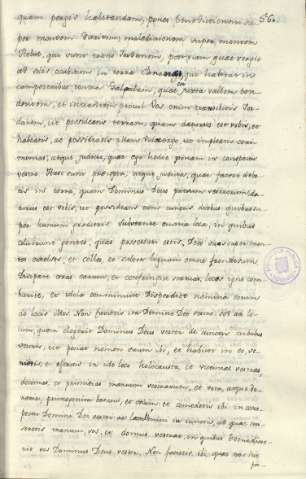 quam pergis habitandam, pones benedictionem su- 56.
per montem Garizim, maledictionem super montem
Hebal, qui sunt trans Jordanem, post viam quae vergit
ad solis occubitum in terra Chananaei, qui habitat in
campestribus contra Galgalam, quae juxta vallem ten-
dentem, et intrantem procul. Vos enim transibitis Jor-
danem, ut possideatis terram, quam daturus est vobis, ut
habeatis, ac possideatis illam. Videte ergo, ut impleatis ceri-
monias, atque judicia, quae ego hodie ponam in conspectu
vestro. Haec sunt praecepta, atque judicia, quae facere debe-
tis in terra, quam Dominus Deus patrum tuorum
daturus est vobis, ut possideatis eam cunctis diebus quibus
super humum gradieris. Subvertite omnia loca, in quibus
coluerunt gentes, quas possessuri estis, Deos suos super mon-
tes excelsos, et colles, et subter lignum omne frondosum.
Dissipate aras earum, et confringite statuas, lucos igne com-
burite, et idola comminuite. Disperdite nomina eorum
de locis illis. Non facietis ita Domino Deo vestro, sed ad lo-
cum, quem elegerit Dominus Deus vester de cunctis tribubus
vestris, ut ponat nomen suum ibi, et habitet in eo, ve-
nietis, et offeretis in illo loco holocausta, et victimas vestras,
decimas, et primitias manuum vestrarum, et vota, atque do-
naria, primogenita boum, et ovium, et comedetis ibi in cons-
pectu Domini Dei vestri ac laetabimini in cunctis, ad quae mi-
seritis manum, vos, et domus vestrae, in quibus benedixerit
vobis Dominus Deus vester. Non facietis ibi quae nos hic